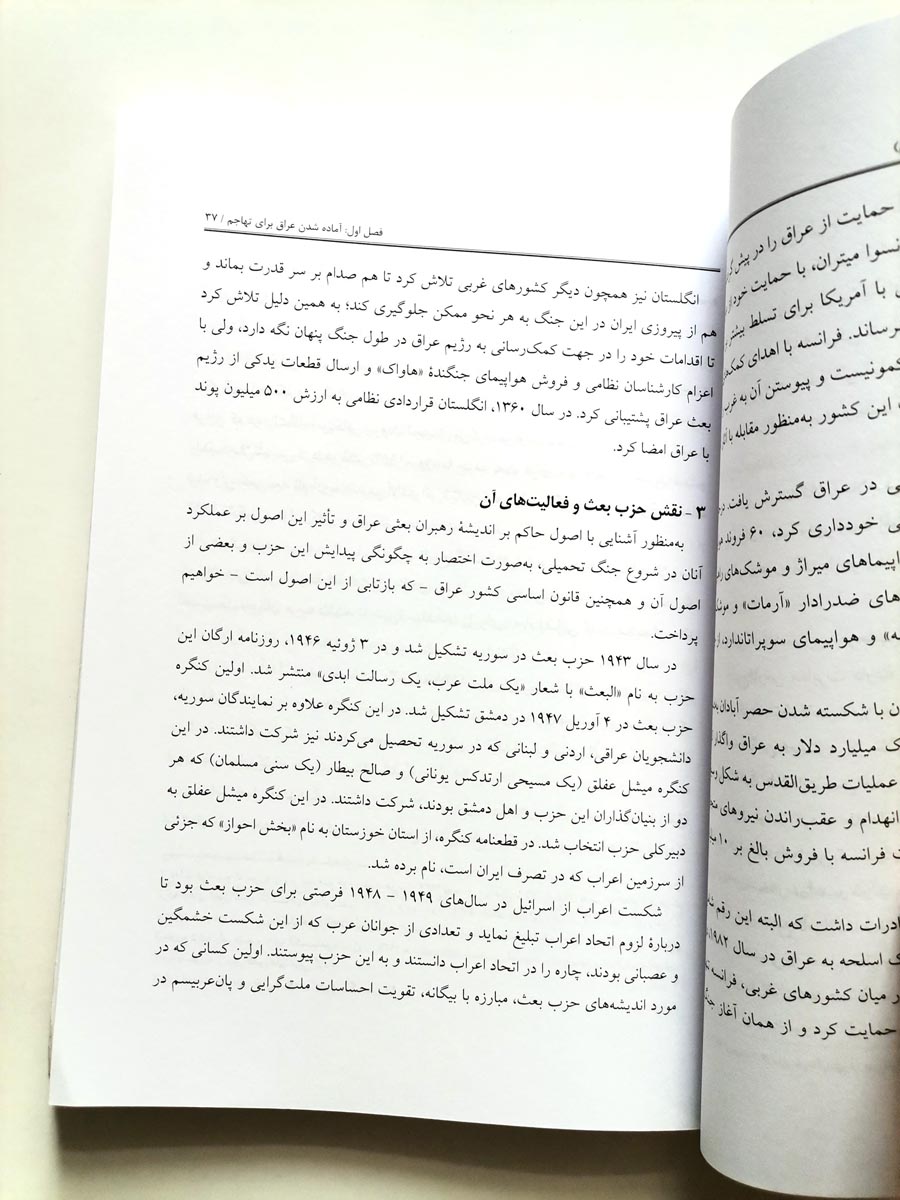 فصل اول: آماده شدن عراق برای تهاجم / ۳۷
انگلستان نیز همچون دیگر کشورهای غربی تلاش کرد تا هم صدام بر سر قدرت بماند و
هم از پیروزی ایران در این جنگ به هر نحو ممکن جلوگیری کند؛ به همین دلیل تلاش کرد
تا اقدامات خود را در جهت کمک‌رسانی به رژیم عراق در طول جنگ پنهان نگه دارد، ولی با
اعزام کارشناسان نظامی و فروش هواپیمای جنگندۀ «هاواک» و ارسال قطعات یدکی از رژیم
بعث عراق پشتیبانی کرد. در سال ۱۳۶۰، انگلستان قراردادی نظامی به ارزش ۵۰۰ میلیون پوند
با عراق امضا کرد.
۳ - نقش حزب بعث و فعالیت‌های آن
به‌منظور آشنایی با اصول حاکم بر اندیشۀ رهبران بعثی عراق و تأثیر این اصول بر عملکرد
آنان در شروع جنگ تحمیلی، به‌صورت اختصار به چگونگی پیدایش این حزب و بعضی از
اصول آن و همچنین قانون اساسی کشور عراق - که بازتابی از این اصول است - خواهیم
پرداخت.
در سال ۱۹۴۳ حزب بعث در سوریه تشکیل شد و در ۳ ژوئیه ۱۹۴۶، روزنامه ارگان این
حزب به نام «البعث» با شعار «یک ملت عرب، یک رسالت ابدی» منتشر شد. اولین کنگره
حزب بعث در ۴ آوریل ۱۹۴۷ در دمشق تشکیل شد. در این کنگره علاوه بر نمایندگان سوریه،
دانشجویان عراقی، اردنی و لبنانی که در سوریه تحصیل می‌کردند نیز شرکت داشتند. در این
کنگره میشل عفلق (یک مسیحی ارتدکس یونانی) و صالح بیطار (یک سنی مسلمان) که هر
دو از بنیان‌گذاران این حزب و اهل دمشق بودند، شرکت داشتند. در این کنگره میشل عفلق به
دبیرکلی حزب انتخاب شد. در قطعنامه کنگره، از استان خوزستان به نام «بخش احواز» که جزئی
از سرزمین اعراب که در تصرف ایران است، نام برده شد.
شکست اعراب از اسرائیل در سال‌های ۱۹۴۹ - ۱۹۴۸ فرصتی برای حزب بعث بود تا
دربارۀ لزوم اتحاد اعراب تبلیغ نماید و تعدادی از جوانان عرب که از این شکست خشمگین
و عصبانی بودند، چاره را در اتحاد اعراب دانستند و به این حزب پیوستند. اولین کسانی که در
مورد اندیشه‌های حزب بعث، مبارزه با بیگانه، تقویت احساسات ملت‌گرایی و پان‌عربیسم در
حمایت از عراق را در پیش
میتران، با حمایت خود از
با آمریکا برای تسلط بیشتر
فرانسه با اهدای
و پیوستن آن به غرب
این کشور به‌منظور مقابله با
در عراق گسترش یافت.
خودداری کرد، ۶۰ فروند
میراژ و موشک‌های
های ضدرادار «آرمات» و
و هواپیمای سوپراتاندارد،
با شکسته شدن حصر آبادان
میلیارد دلار به عراق
عملیات طریق‌القدس به شکل
انهدام و عقب‌راندن نیروهای
فرانسه با فروش بالغ بر ۱۰
داشت که البته این رقم
اسلحه به عراق در سال ۱۹۸۲،
میان کشورهای غربی، فرانسه
حمایت کرد و از همان آغاز